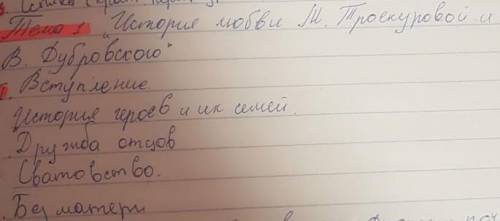 Тема 1 „История любви М. Троекуровой и
В. Дубровского"
Вступление
История героев и их семей.
Дружба отцов
Сватовство.
Без матери